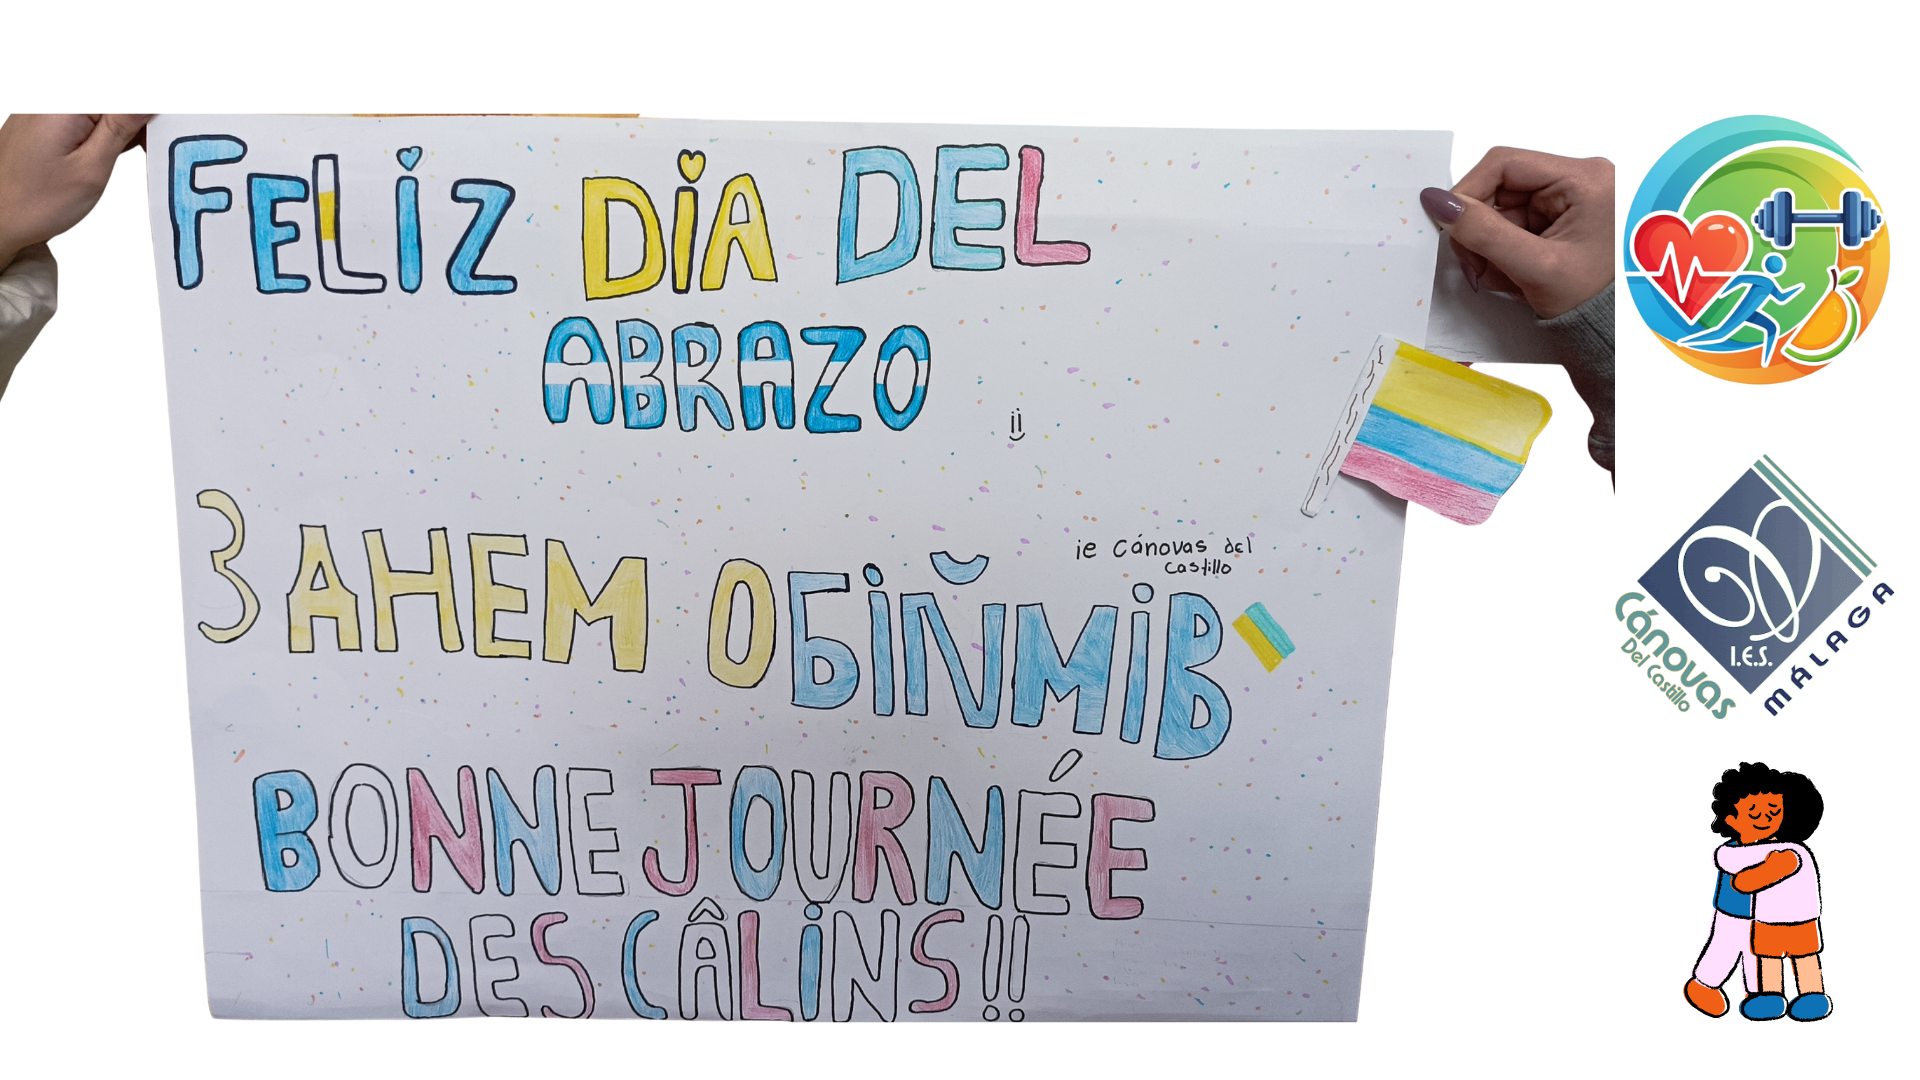 FELIZ DÍA DEL
ABRAZO
З АНЕМ ОБІЙМІВ
ie Cánovas del
Castillo
BONNE JOURNÉE
DES CÂLINS!!
I.E.S.
Cánovas
Del Castillo
MÁLAGA